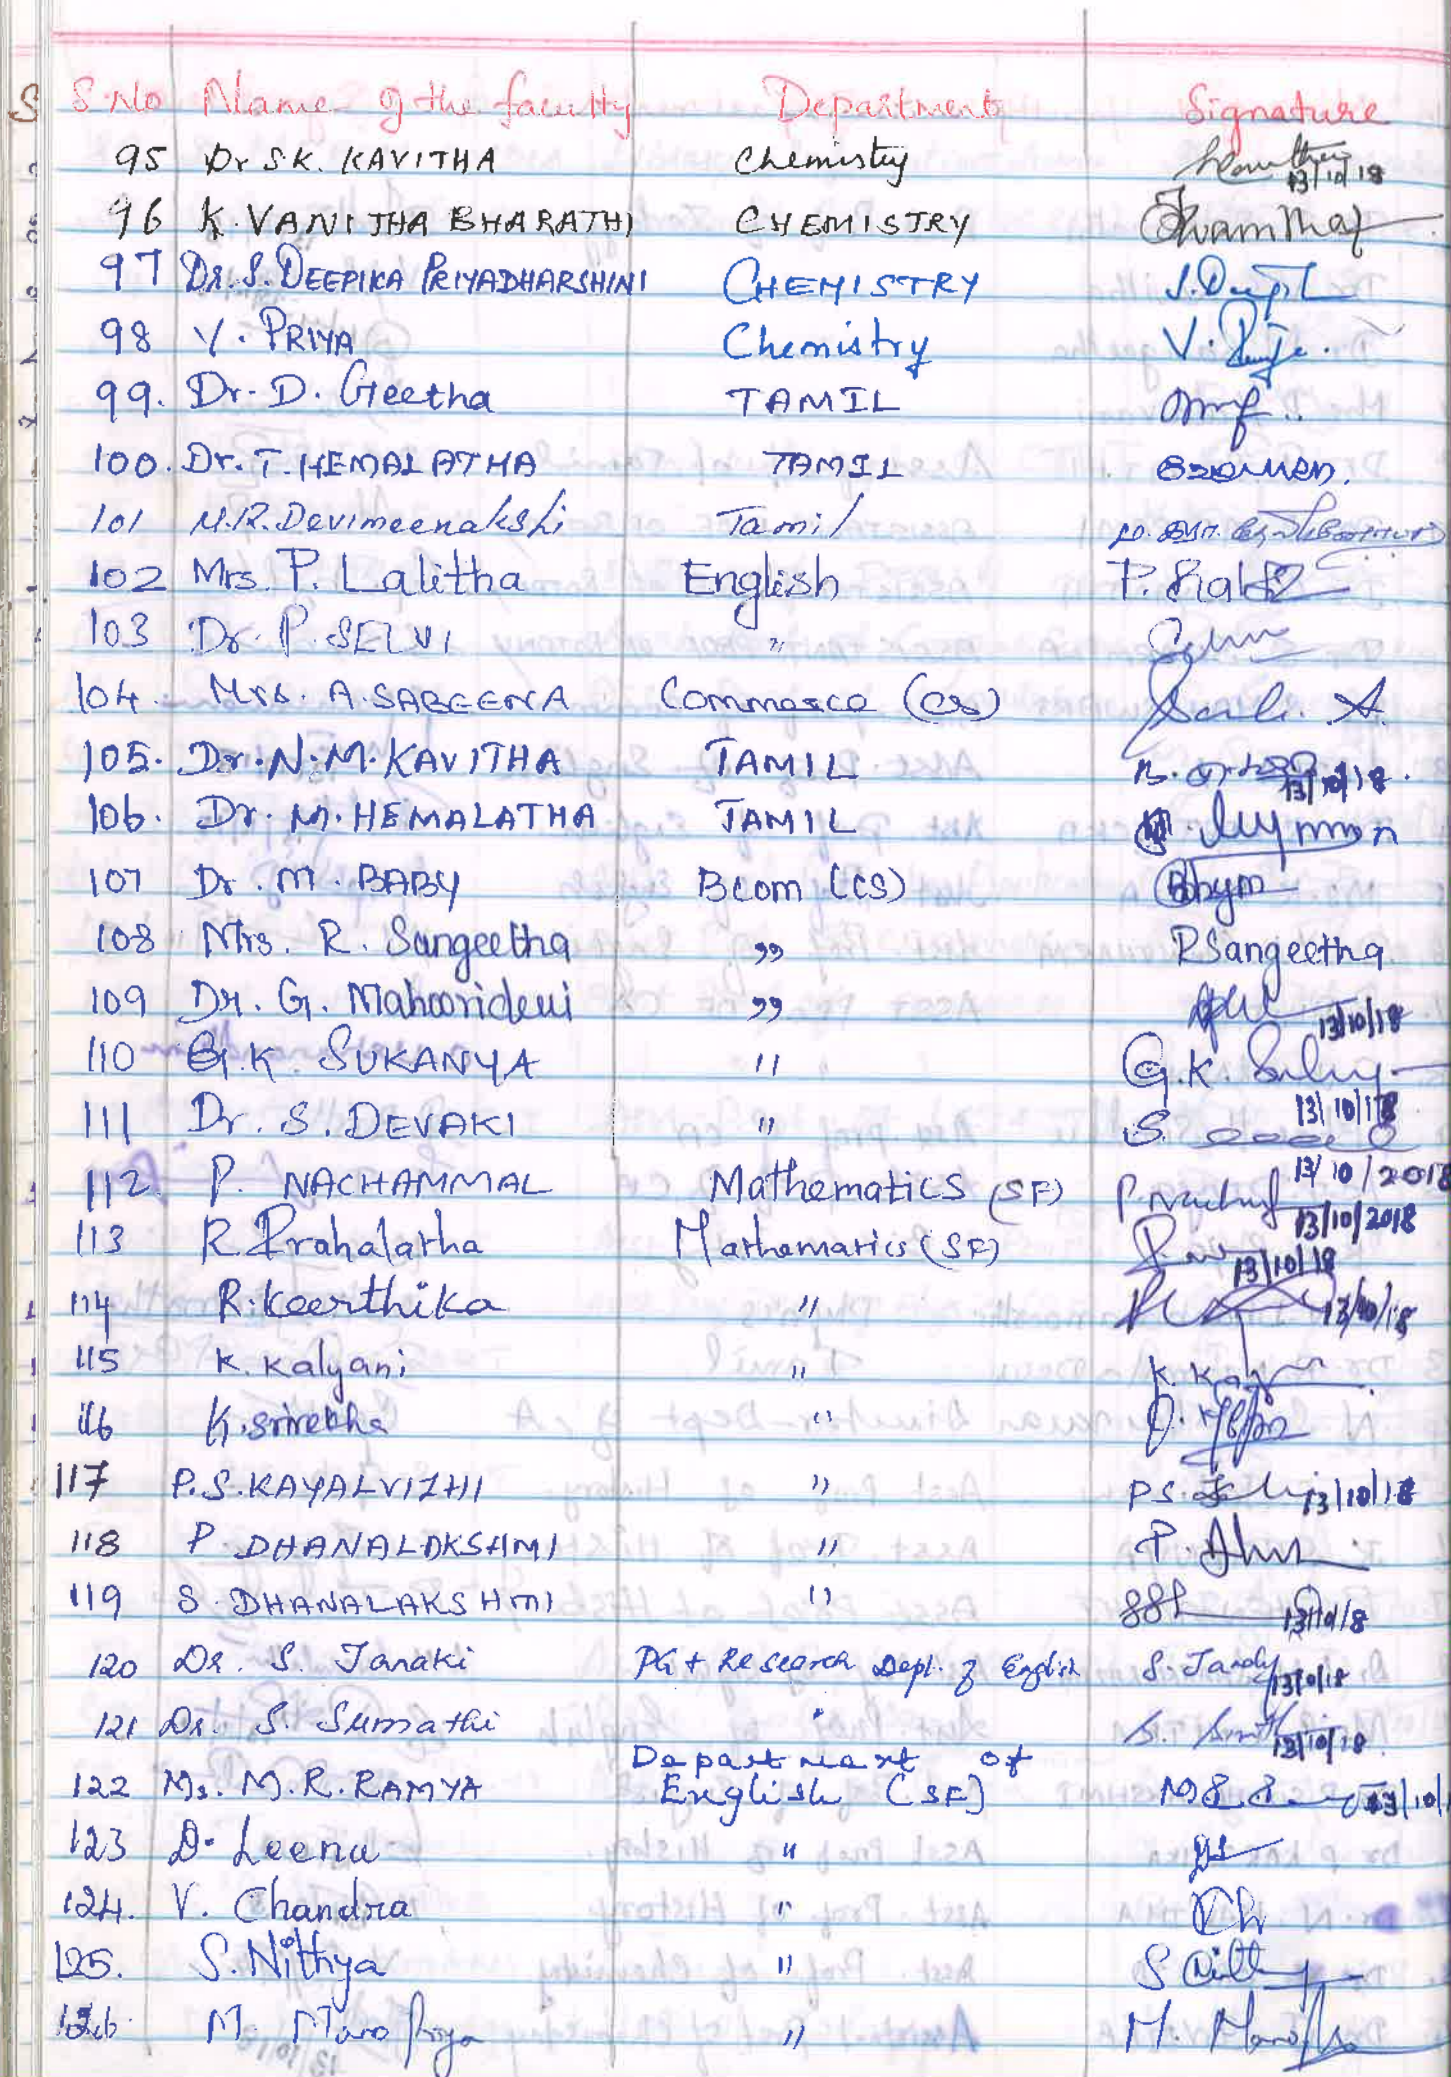 S.No Name of the faculty Department Signature
95 Dr SK. KAVITHA Chemistry 13/10/18
96 K. VANITHA BHARATHI CHEMISTRY
97 Dr. S. DEEPIKA PRIYADHARSHINI CHEMISTRY
98 V. PRIYA Chemistry V.
99. Dr. D. Geetha TAMIL
100. Dr. T. HEMALATHA TAMIL
101 M.R. Devimeenakshi Tamil
102 Mrs. P. Lalitha English P.
103 Dr. P. SELVI "
104. Mrs. A. SABEENA Commerce (CS) A.
105. Dr. N. M. KAVITHA TAMIL 13/10/18.
106. Dr. M. HEMALATHA TAMIL
107 Dr. M. BABY Bcom (CS)
108 Mrs. R. Sangeetha " R Sangeetha
109 Dr. G. " 13/10/18
110 G.K. SUKANYA " G.K.
111 Dr. S. DEVAKI " S. 13/10/18
112. P. NACHAMMAL Mathematics (SF) 13/10/2018
113 R. Prahalatha Mathematics (SF) 13/10/2018
114 R. Keerthika " 13/10/18 13/10/18
115 K. Kalyani " K.
116 K. Srirekha "
117 P.S. KAYALVIZHI " P S. 13/10/18
118 P. DHANALAKSHMI " P.
119 S. DHANALAKSHMI "
120 Dr. S. Janaki PG + Research Dept. of English S. 13/10/18
121 Dr. S. Sumathi " S. 13/10/18
122 Ms. M. R. RAMYA Department of
English (SF) 13/10/
123 D. Leena "
124. V. Chandra "
125. S. Nithya " S
126. M. "  M.